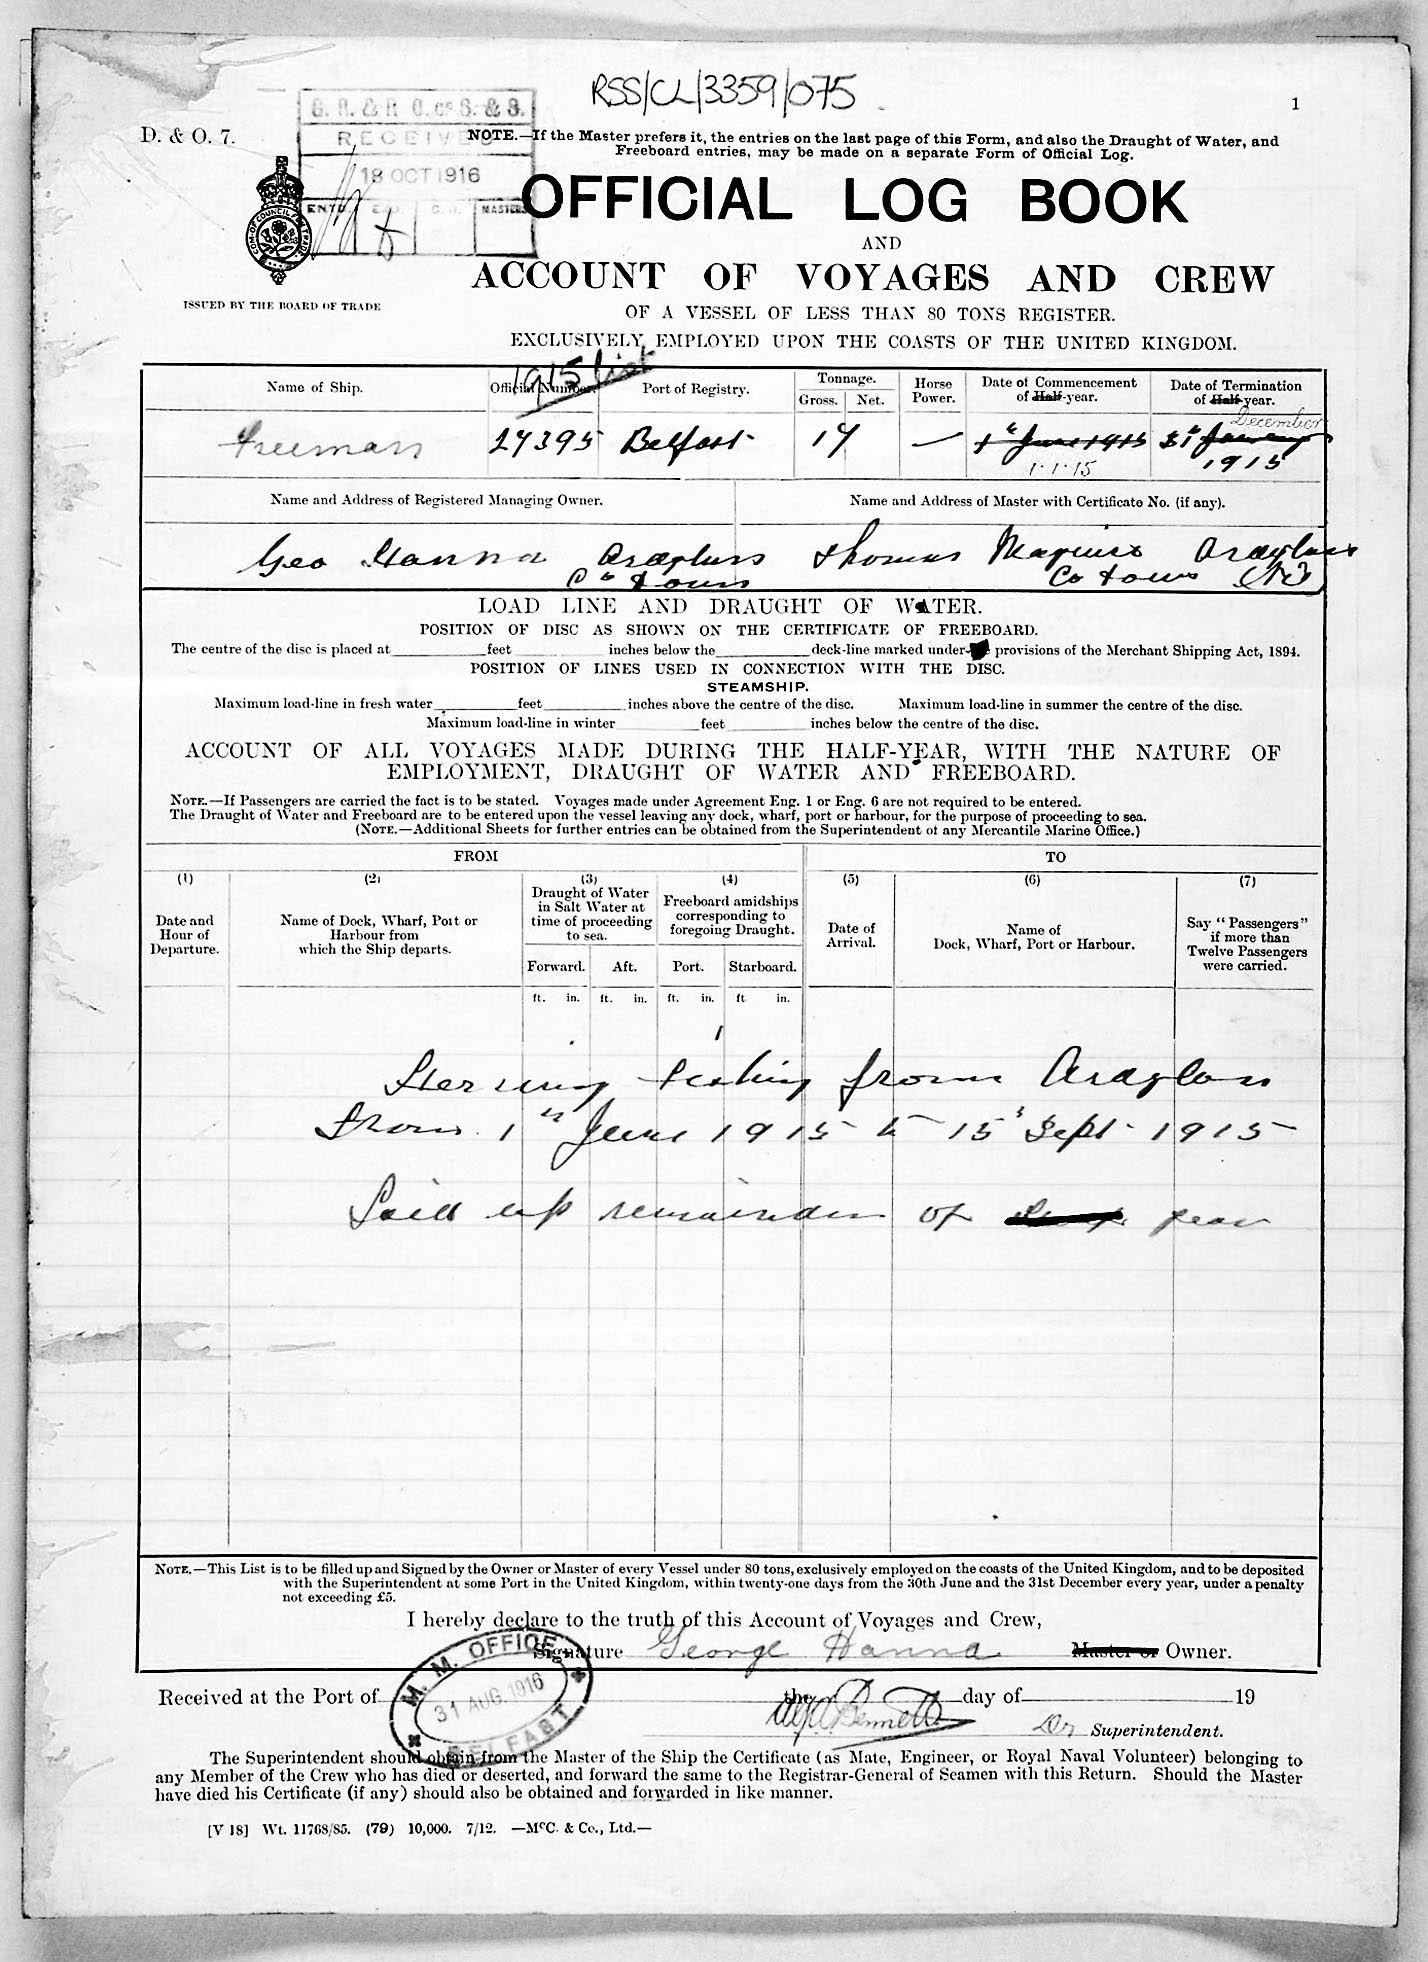 RSS/CL/3359/075
1
D. & O. 7.
G. R. & R. G. of S. & S.
RECEIVED
18 OCT 1916
NOTE.—If the Master prefers it, the entries on the last page of this Form, and also the Draught of Water, and
Freeboard entries, may be made on a separate Form of Official Log.
OFFICIAL LOG BOOK
AND
ACCOUNT OF VOYAGES AND CREW
ISSUED BY THE BOARD OF TRADE
OF A VESSEL OF LESS THAN 80 TONS REGISTER.
EXCLUSIVELY EMPLOYED UPON THE COASTS OF THE UNITED KINGDOM.
1915 list
Name of Ship. Official Number. Port of Registry. Tonnage. Gross. Net. Horse Power. Date of Commencement of Half-year. Date of Termination of Half-year.
December
Freeman 27395 Belfast 17 — 1st June 1915 31st 1915
1.1.15
Name and Address of Registered Managing Owner. Name and Address of Master with Certificate No. (if any).
Geo Hanna Ardglass Thomas Ardglass
Co Down Co Down
LOAD LINE AND DRAUGHT OF WATER.
POSITION OF DISC AS SHOWN ON THE CERTIFICATE OF FREEBOARD.
The centre of the disc is placed at feet inches below the deck-line marked under provisions of the Merchant Shipping Act, 1894.
POSITION OF LINES USED IN CONNECTION WITH THE DISC.
STEAMSHIP.
Maximum load-line in fresh water feet inches above the centre of the disc. Maximum load-line in summer the centre of the disc.
Maximum load-line in winter feet inches below the centre of the disc.
ACCOUNT OF ALL VOYAGES MADE DURING THE HALF-YEAR, WITH THE NATURE OF
EMPLOYMENT, DRAUGHT OF WATER AND FREEBOARD.
NOTE.—If Passengers are carried the fact is to be stated. Voyages made under Agreement Eng. 1 or Eng. 6 are not required to be entered.
The Draught of Water and Freeboard are to be entered upon the vessel leaving any dock, wharf, port or harbour, for the purpose of proceeding to sea.
(NOTE.—Additional Sheets for further entries can be obtained from the Superintendent of any Mercantile Marine Office.)
FROM TO
(1) (2) (3) (4) (5) (6) (7)
Date and Hour of Departure.
Name of Dock, Wharf, Port or Harbour from which the Ship departs.
Draught of Water in Salt Water at time of proceeding to sea.
Freeboard amidships corresponding to foregoing Draught.
Date of Arrival.
Name of Dock, Wharf, Port or Harbour.
Say "Passengers" if more than Twelve Passengers were carried.
Forward. Aft. Port. Starboard.
ft. in. ft. in. ft. in. ft in.
Herring fishing from Ardglass
from 1st June 1915 to 15 Sept 1915
Laid up remainder of year
NOTE.—This List is to be filled up and Signed by the Owner or Master of every Vessel under 80 tons, exclusively employed on the coasts of the United Kingdom, and to be deposited
with the Superintendent at some Port in the United Kingdom, within twenty-one days from the 30th June and the 31st December every year, under a penalty
not exceeding £5.
I hereby declare to the truth of this Account of Voyages and Crew,
Signature George Hanna Master or Owner.
M. M. OFFICE
31 AUG. 1916
BELFAST
Received at the Port of the day of 19
Bennett Dr Superintendent.
The Superintendent should obtain from the Master of the Ship the Certificate (as Mate, Engineer, or Royal Naval Volunteer) belonging to
any Member of the Crew who has died or deserted, and forward the same to the Registrar-General of Seamen with this Return. Should the Master
have died his Certificate (if any) should also be obtained and forwarded in like manner.
[V 18] Wt. 11768/85. (79) 10,000. 7/12. —McC. & Co., Ltd.—